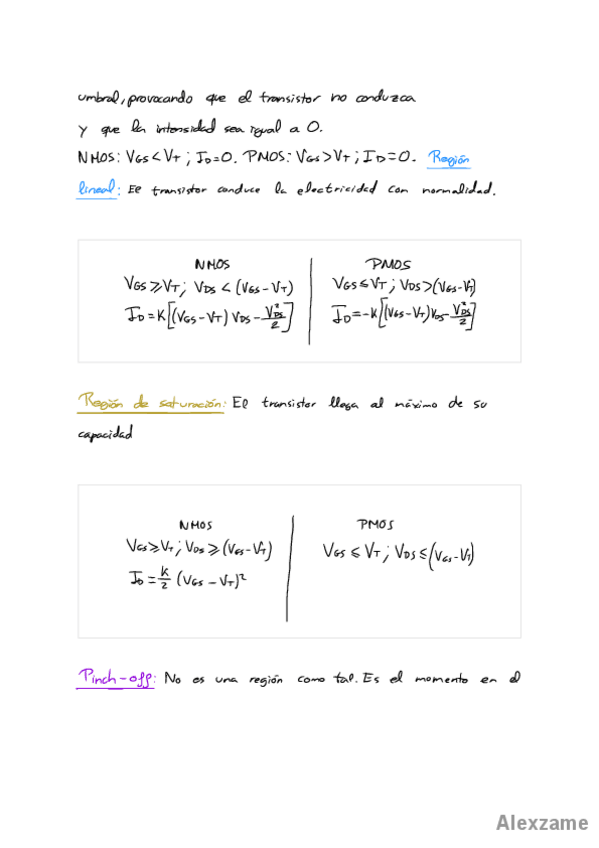 umbral, provocando que el transistor no conduzca
y que la intensidad sea igual a 0.
NMOS: VGS < VT ; ID = 0. PMOS: VGS > VT ; ID = 0. Región
lineal: El transistor conduce la electricidad con normalidad.
NMOS
VGS ≥ VT ; VDS < (VGS - VT)
ID = K[(VGS - VT) VDS - VDS²/2]
PMOS
VGS ≤ VT ; VDS > (VGS - VT)
ID = -K[(VGS - VT) VDS - VDS²/2]
Región de saturación: El transistor llega al máximo de su
capacidad
NMOS
VGS ≥ VT ; VDS ≥ (VGS - VT)
ID = K/2 (VGS - VT)²
PMOS
VGS ≤ VT ; VDS ≤ (VGS - VT)
Pinch-off: No es una región como tal. Es el momento en el
Alexzame